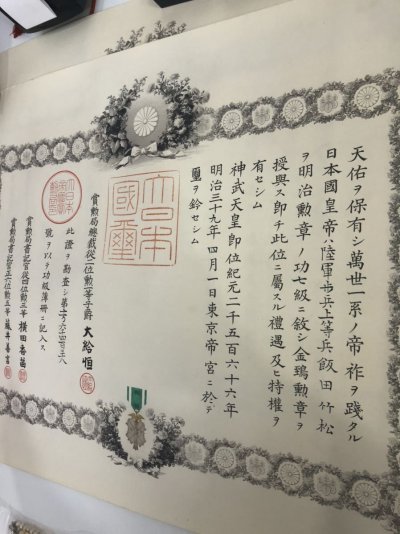 天佑ヲ保有シ萬世一系ノ帝祚ヲ踐タル
日本國皇帝ハ陸軍歩兵上等兵飯田竹松
ヲ明治勲章ノ功七級ニ敘シ金鵄勲章ヲ
授與ス即チ此位ニ屬スル禮遇及ヒ特權ヲ
有セシム
神武天皇即位紀元二千五百六十六年
明治三十九年四月一日東京帝宮ニ於テ
璽ヲ鈐セシム
大日本國璽
賞勲局總裁從二位勲一等子爵 大給恒
此證ヲ勘査シ第
號ヲ以テ功級簿冊ニ記入ス
賞勲局書記官從四位勲三等 横田香苗
賞勲局書記官正六位勲五等 藤井善言